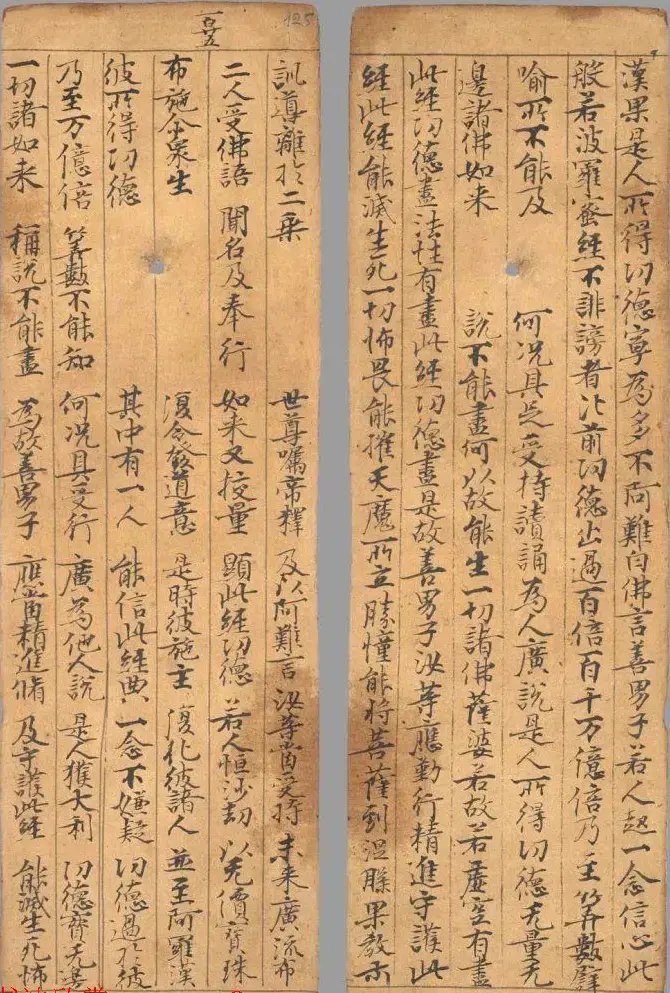 漢果是人所得功德寧為多不阿難白佛言善男子若人起一念信心此
般若波羅蜜經不誹謗者比前功德出過百倍百千万億倍乃至筭數譬
喻所不能及 何况具足受持讀誦為人廣說是人所得功德无量无
邊諸佛如来 說不能盡何以故能生一切諸佛薩婆若故若虛空有盡
此經功德盡法性有盡此經功德盡是故善男子汝等應勤行精進守護此
經此經能滅生死一切怖畏能摧天魔所立勝幢能將菩薩到涅槃果教示
125
訓導離於二乘 世尊囑帝釋 及以阿難言 汝等當受持 未来廣流布
二人受佛語 聞名及奉行 如来又挍量 顯此經功德 若人恒沙劫 以无價寶珠
布施眾生 復令發道意 是時彼施主 復化彼諸人 並至阿羅漢
彼所得功德 其中有一人 能信此經典 一念不嫌疑 功德過於彼
乃至万億倍 筭數不能知 何况具受行 廣為他人說 是人獲大利 功德寶无
一切諸如来 稱說不能盡 為故善男子 應當精進脩 及守護此經 能滅生死怖